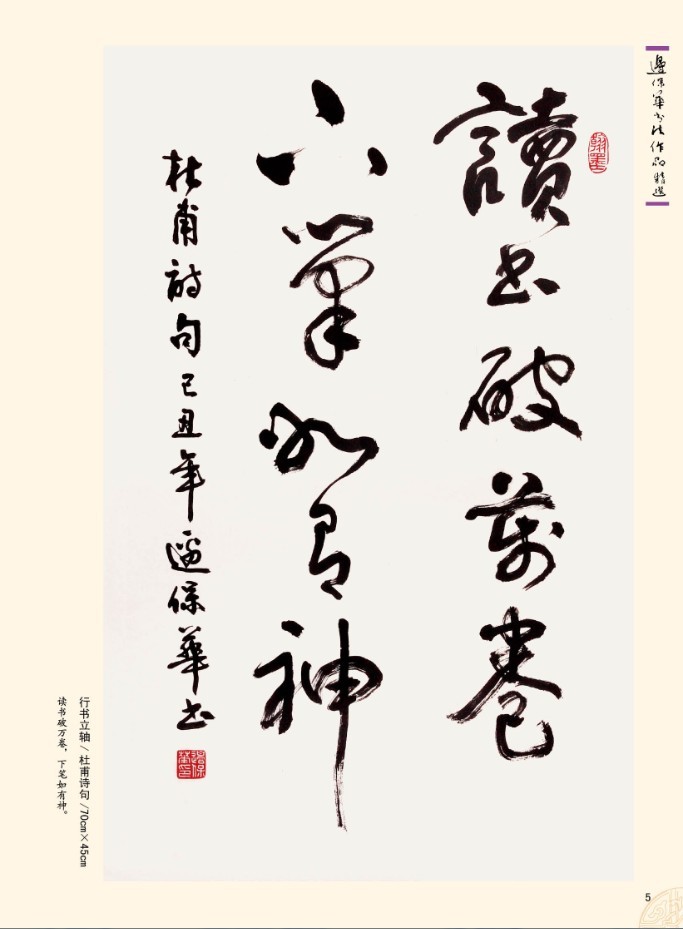 邊保華书法作品精選
翰墨
讀书破萬卷
下筆如有神
杜甫詩句己丑年邊保華书
邊保華印
行书立轴/杜甫诗句/70cm×45cm
读书破万卷，下笔如有神。
5